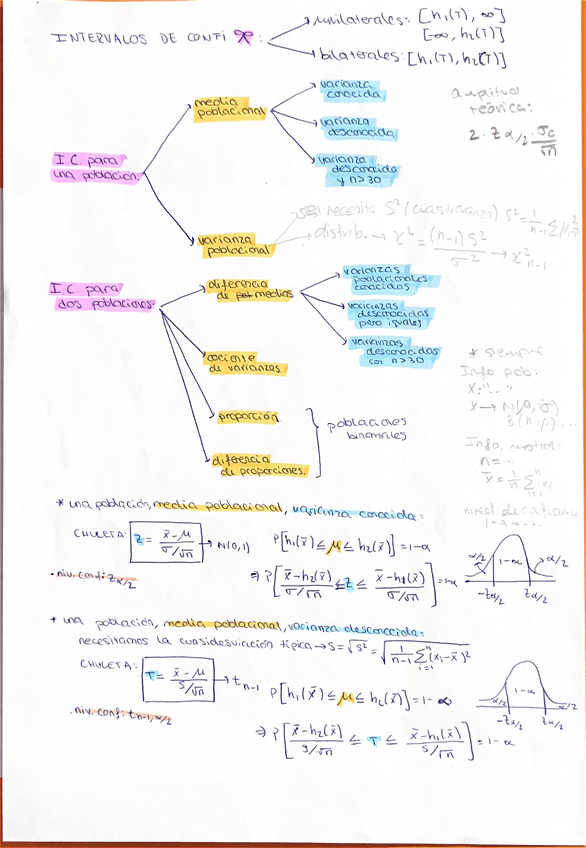 INTERVALOS DE CONFI :
unilaterales: [h₁(T), ∞]
[-∞, h₂(T)]
bilaterales: [h₁(T), h₂(T)]
amplitud
teórica:
2 · z α/2 · σc/√n
I.C. para
una población.
media
poblacional
varianza
conocida
varianza
desconocida.
varianza
desconocida
y n>30
varianza
poblacional
necesita S² (cuasivarianza) S² = 1/n-1 Σ
distrib. → χ² = (n-1) S²/σ² → χ² n-1
I.C. para
dos poblaciones
diferencia
de medias
varianzas
poblacionales
conocidas
varianzas
desconocidas
pero iguales
varianzas
desconocidas
con n>30
cociente
de varianzas.
proporción.
diferencia
de proporciones.
poblaciones
binomiales
* siempre
Info pob:
X: "..."
X → N(0, σ)
t(n, p) ...
Info. mostral:
n = ...
x̄ = 1/n Σ xᵢ
nivel de confianza
1-α = ...
* una población, media poblacional, varianza conocida:
CHULETA: Z = x̄-μ / σ/√n → N(0,1)
P[h₁(x̄) ≤ μ ≤ h₂(x̄)] = 1-α
· niv. confi: z α/2
⇒ P[x̄-h₂(x̄) / σ/√n ≤ z ≤ x̄-h₁(x̄) / σ/√n] = 1-α
α/2 1-α α/2
-zα/2 zα/2
* una población, media poblacional, varianza desconocida:
necesitamos la cuasidesviación típica → S = √S² = √(1/n-1 Σ (xᵢ-x̄)²)
CHULETA: T = x̄-μ / S/√n → t n-1
P[h₁(x̄) ≤ μ ≤ h₂(x̄)] = 1-α
· niv. conf: t n-1, α/2
⇒ P[x̄-h₂(x̄) / S/√n ≤ T ≤ x̄-h₁(x̄) / S/√n] = 1-α
α/2 1-α α/2
-zα/2 zα/2